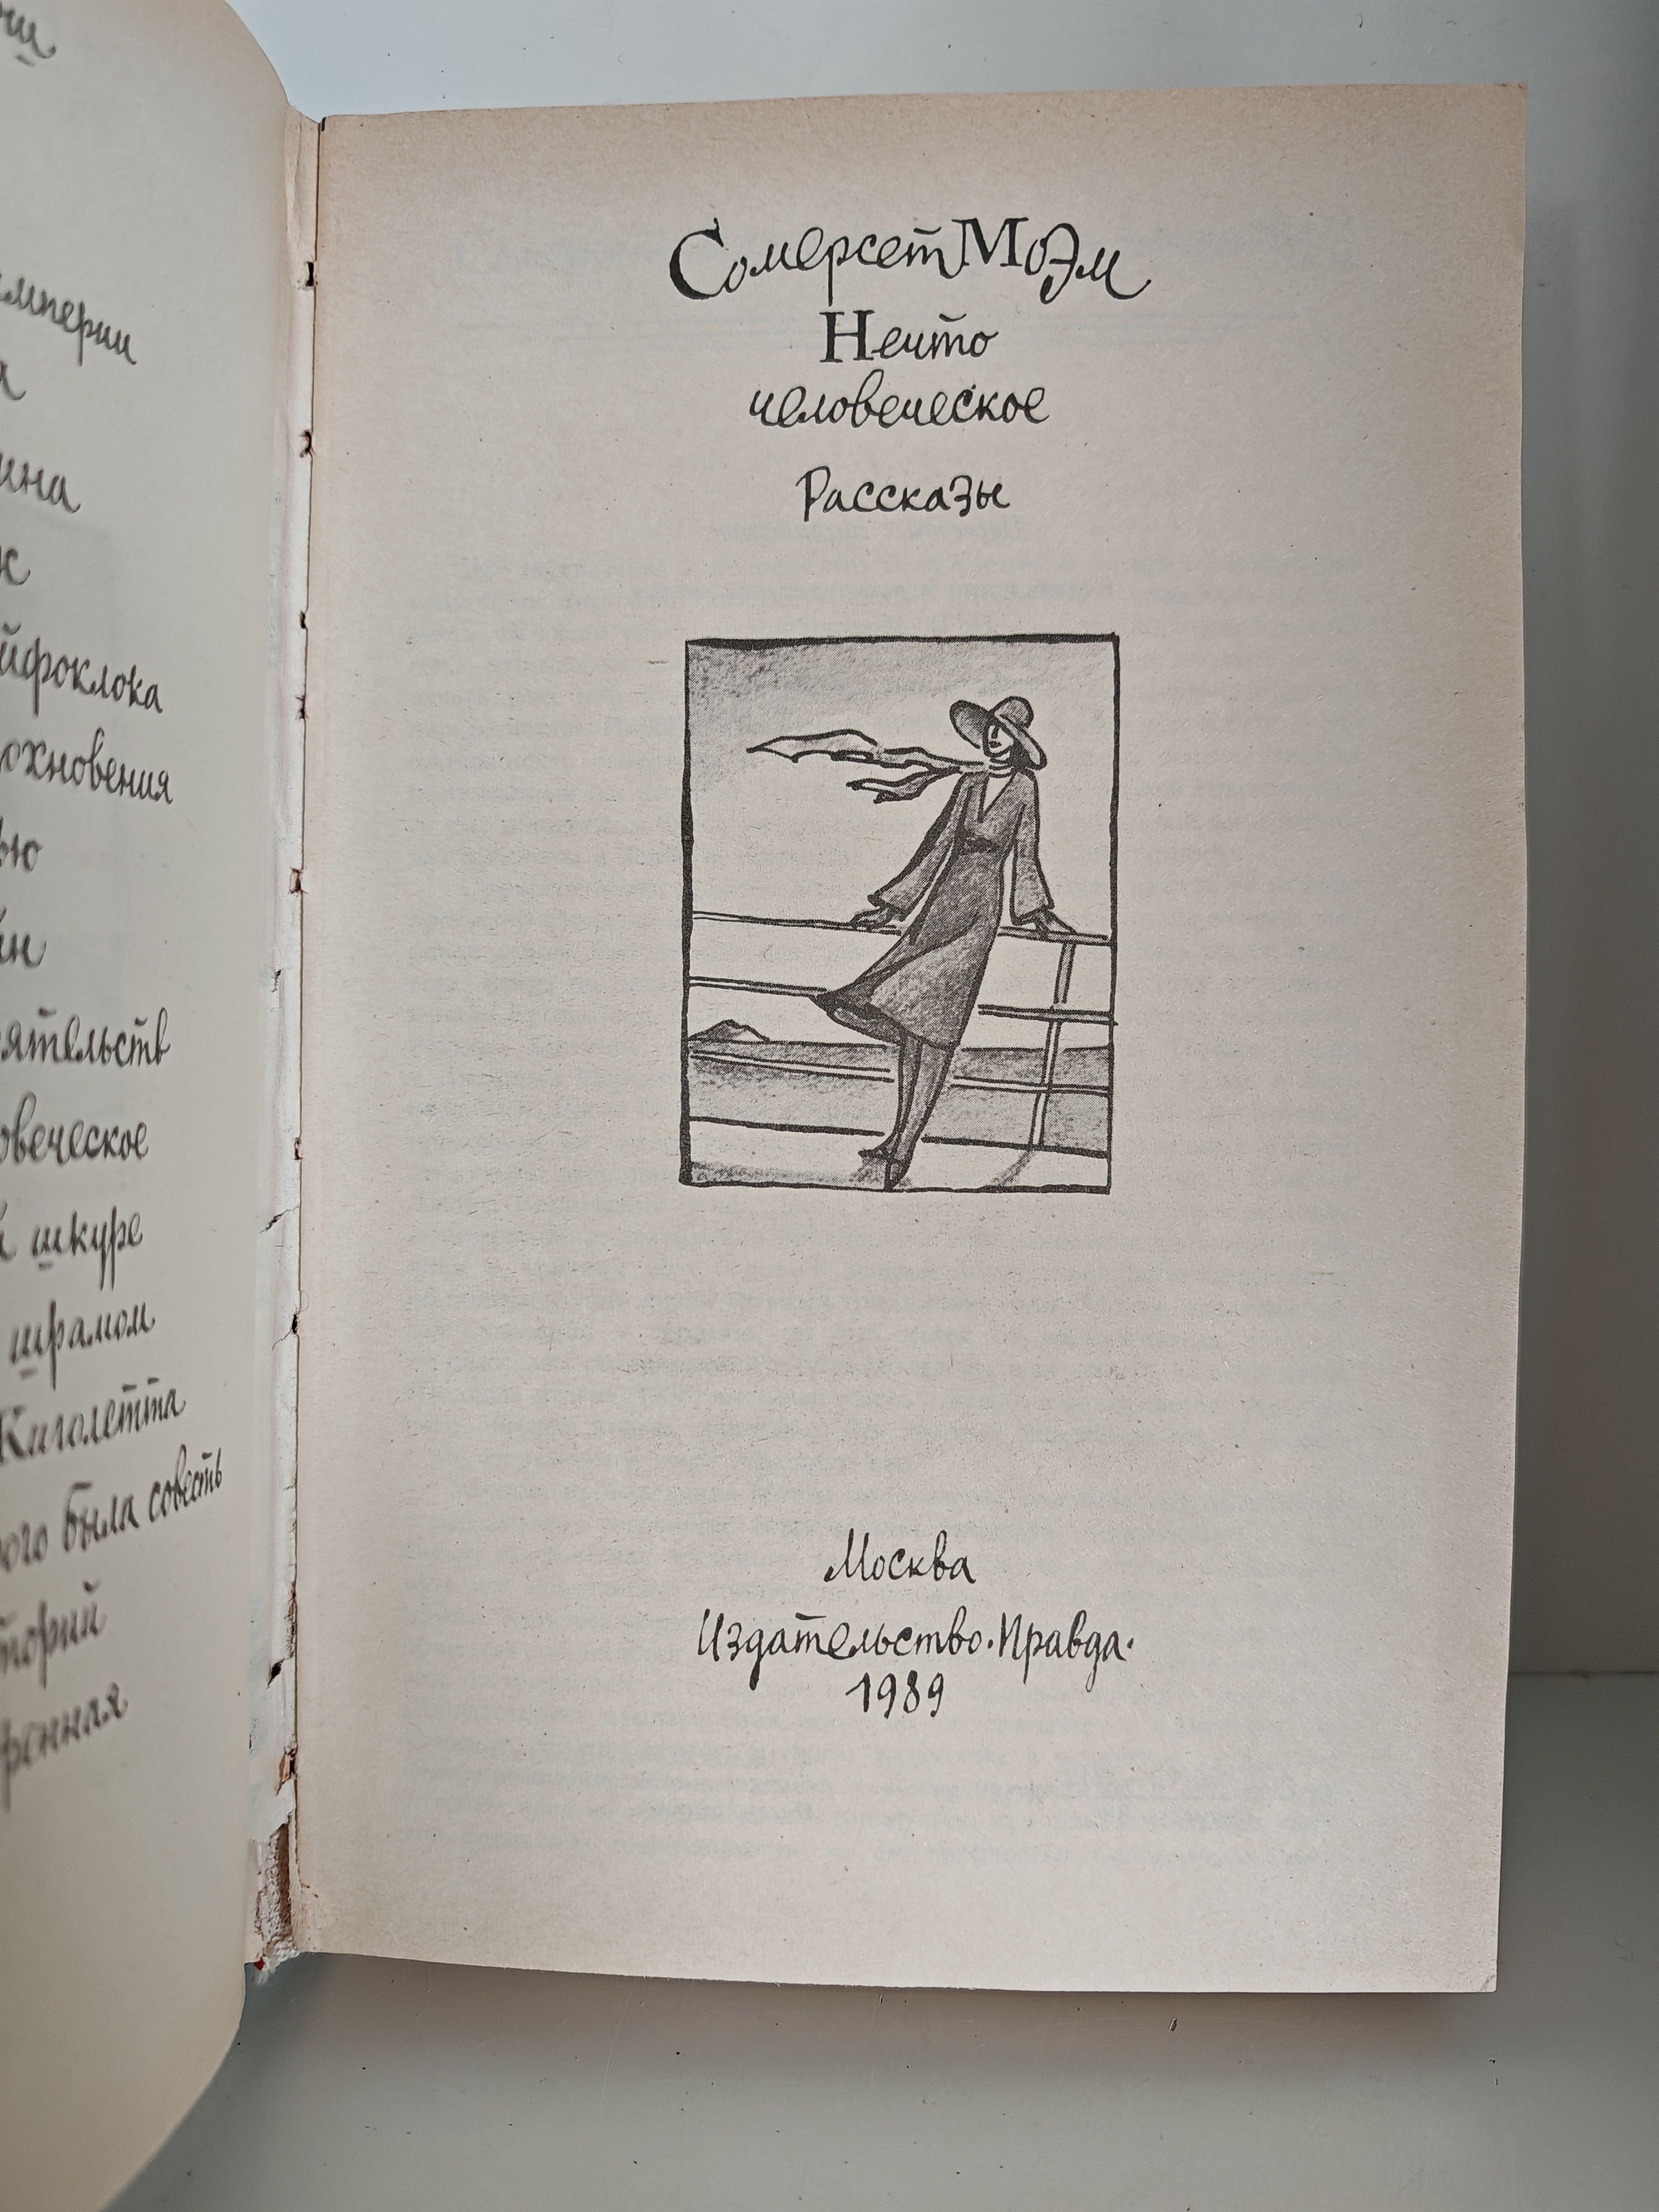 мперии
а
ина
к
йфоклока
охновения
ью
ятельств
овеческое
шкуре
шрамом
Киголетта
ого была совесть
торий
Сомерсет Моэм
Нечто
человеческое
Рассказы
Москва
Издательство·Правда·
1989